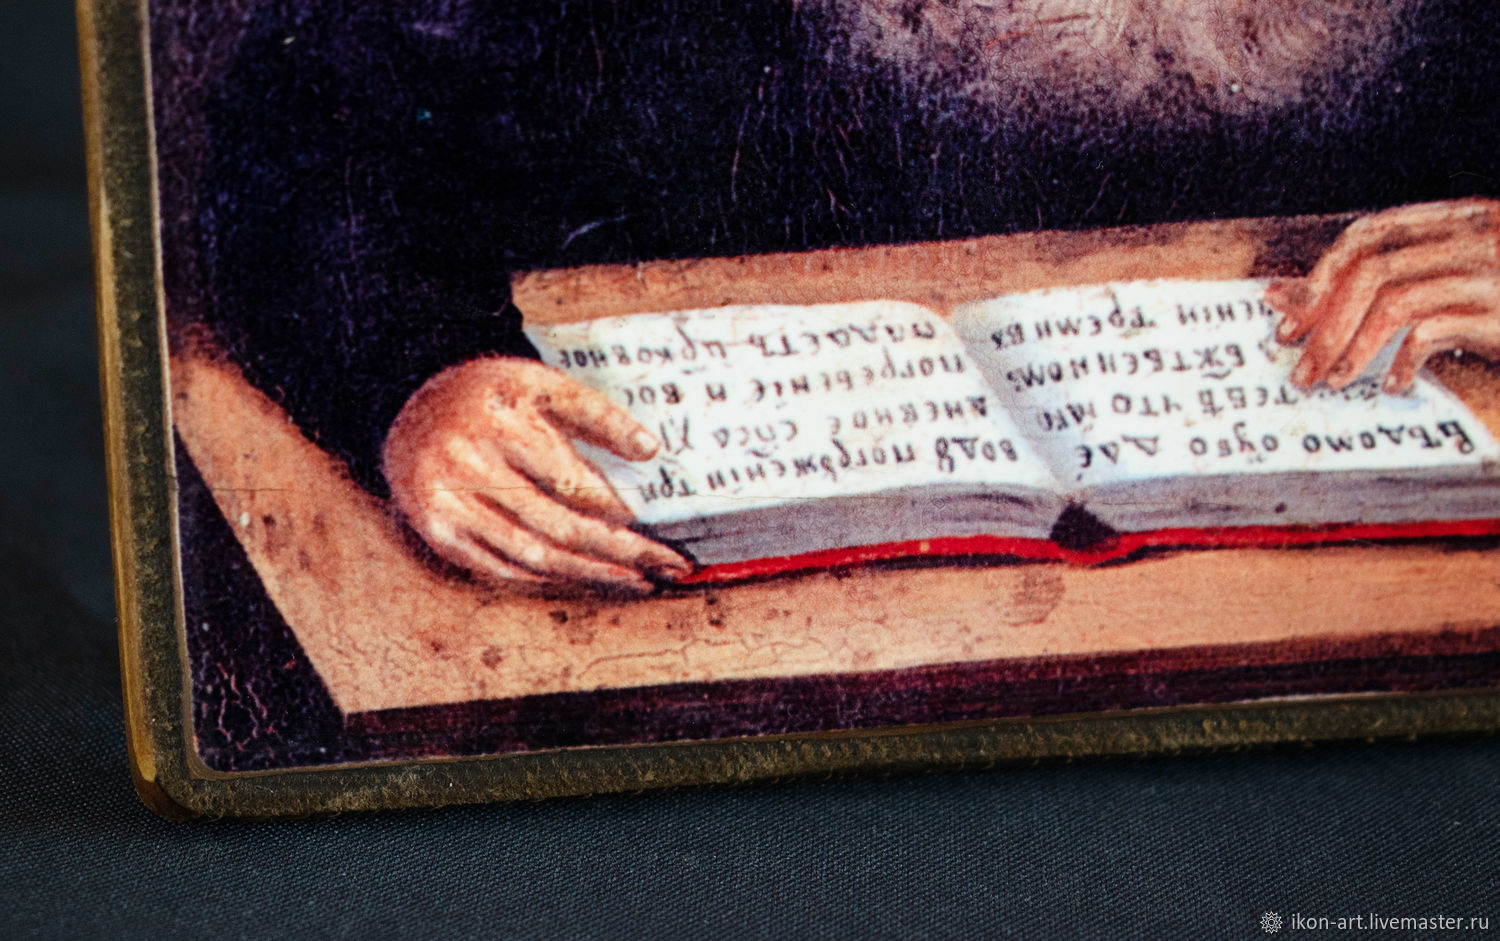 Вѣдомо оубо дае́
тебѣ что
бжтвенномъ
ченіи треми въ
водꙋ погрꙋженіи три
дневное спса
погребеніе и вос
падаетъ црковное
ikon-art.livemaster.ru